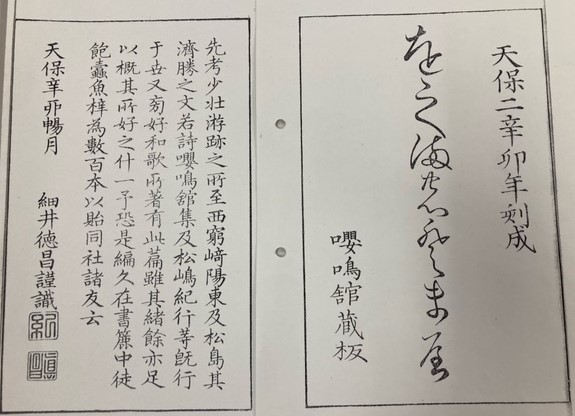 天保二辛卯年刻成
嚶鳴舘蔵板
先考少壮游跡之所至西窮﨑陽東及松島其
濟勝之文若詩嚶鳴舘集及松嶋紀行等既行
于世又窃好和歌所著有此篇雖其緒餘亦足
以概其所好之什一予恐是編久在書簏中徒
飽蠹魚梓為數百本以貽同社諸友云
天保辛卯暢月　細井徳昌謹識